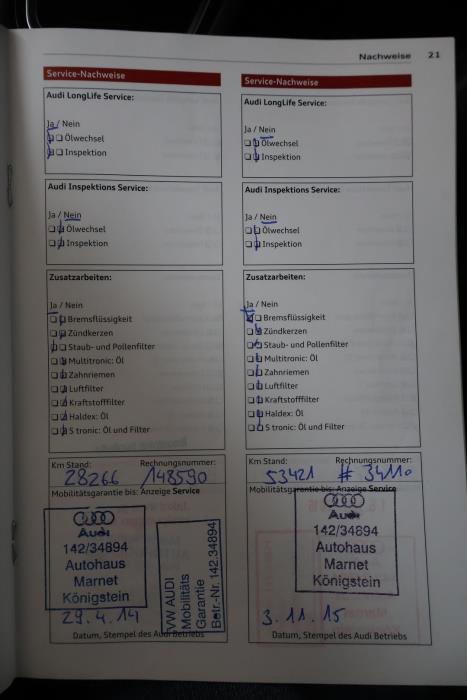 Nachweise 21
Service-Nachweise
Audi LongLife Service:
Ja / Nein
Ölwechsel
Inspektion
Audi Inspektions Service:
Ja / Nein
Ölwechsel
Inspektion
Zusatzarbeiten:
Ja / Nein
Bremsflüssigkeit
Zündkerzen
Staub- und Pollenfilter
Multitronic: Öl
Zahnriemen
Luftfilter
Kraftstofffilter
Haldex: Öl
S tronic: Öl und Filter
Km Stand: Rechnungsnummer:
28266 148590
Mobilitätsgarantie bis: Anzeige Service
Audi
142/34894
Autohaus
Marnet
Königstein
VW AUDI
Mobilitäts
Garantie
Betr.-Nr. 142.34894
29.4.14
Datum, Stempel des Audi Betriebs
Service-Nachweise
Audi LongLife Service:
Ja / Nein
Ölwechsel
Inspektion
Audi Inspektions Service:
Ja / Nein
Ölwechsel
Inspektion
Zusatzarbeiten:
Ja / Nein
Bremsflüssigkeit
Zündkerzen
Staub- und Pollenfilter
Multitronic: Öl
Zahnriemen
Luftfilter
Kraftstofffilter
Haldex: Öl
S tronic: Öl und Filter
Km Stand: Rechnungsnummer:
53421 # 34110
Mobilitätsgarantie bis: Anzeige Service
Audi
142/34894
Autohaus
Marnet
Königstein
3.11.15
Datum, Stempel des Audi Betriebs